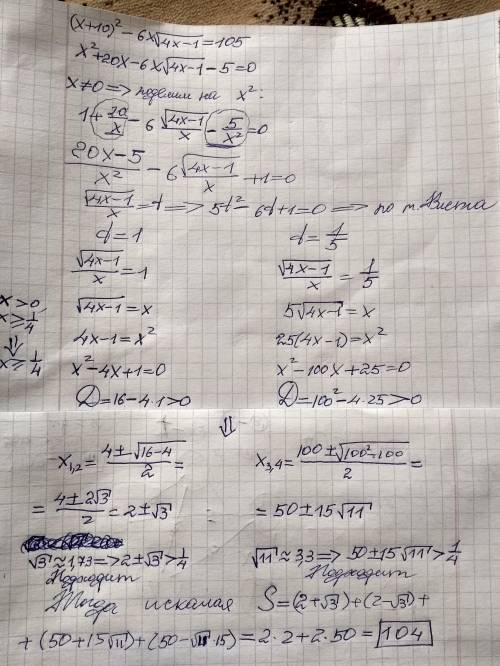 (x+10)² - 6x√4x-1 = 105
x² + 20x - 6x√4x-1 - 5 = 0
x ≠ 0 => поделим на x²:
1 + 20/x - 6 √4x-1/x - 5/x² = 0
20x-5/x² - 6 √4x-1/x + 1 = 0
√4x-1/x = t => 5t² - 6t + 1 = 0 => по т. Виета
t = 1
t = 1/5
√4x-1/x = 1
√4x-1/x = 1/5
x > 0
x ≥ 1/4
⇓
x ≥ 1/4
√4x-1 = x
5√4x-1 = x
4x-1 = x²
25(4x-1) = x²
x² - 4x + 1 = 0
x² - 100x + 25 = 0
D = 16 - 4·1 > 0
D = 100² - 4·25 > 0
⇓
x1,2 = 4±√16-4/2 =
x3,4 = 100±√100²-100/2 =
= 4±2√3/2 = 2±√3
= 50±15√11
√3 ≈ 1,73 => 2±√3 > 1/4
Подходит
√11 ≈ 3,3 => 50±15√11 > 1/4
Подходит
Тогда искомая S = (2+√3) + (2-√3) +
+ (50+15√11) + (50-√11·15) = 2·2 + 2·50 = 104